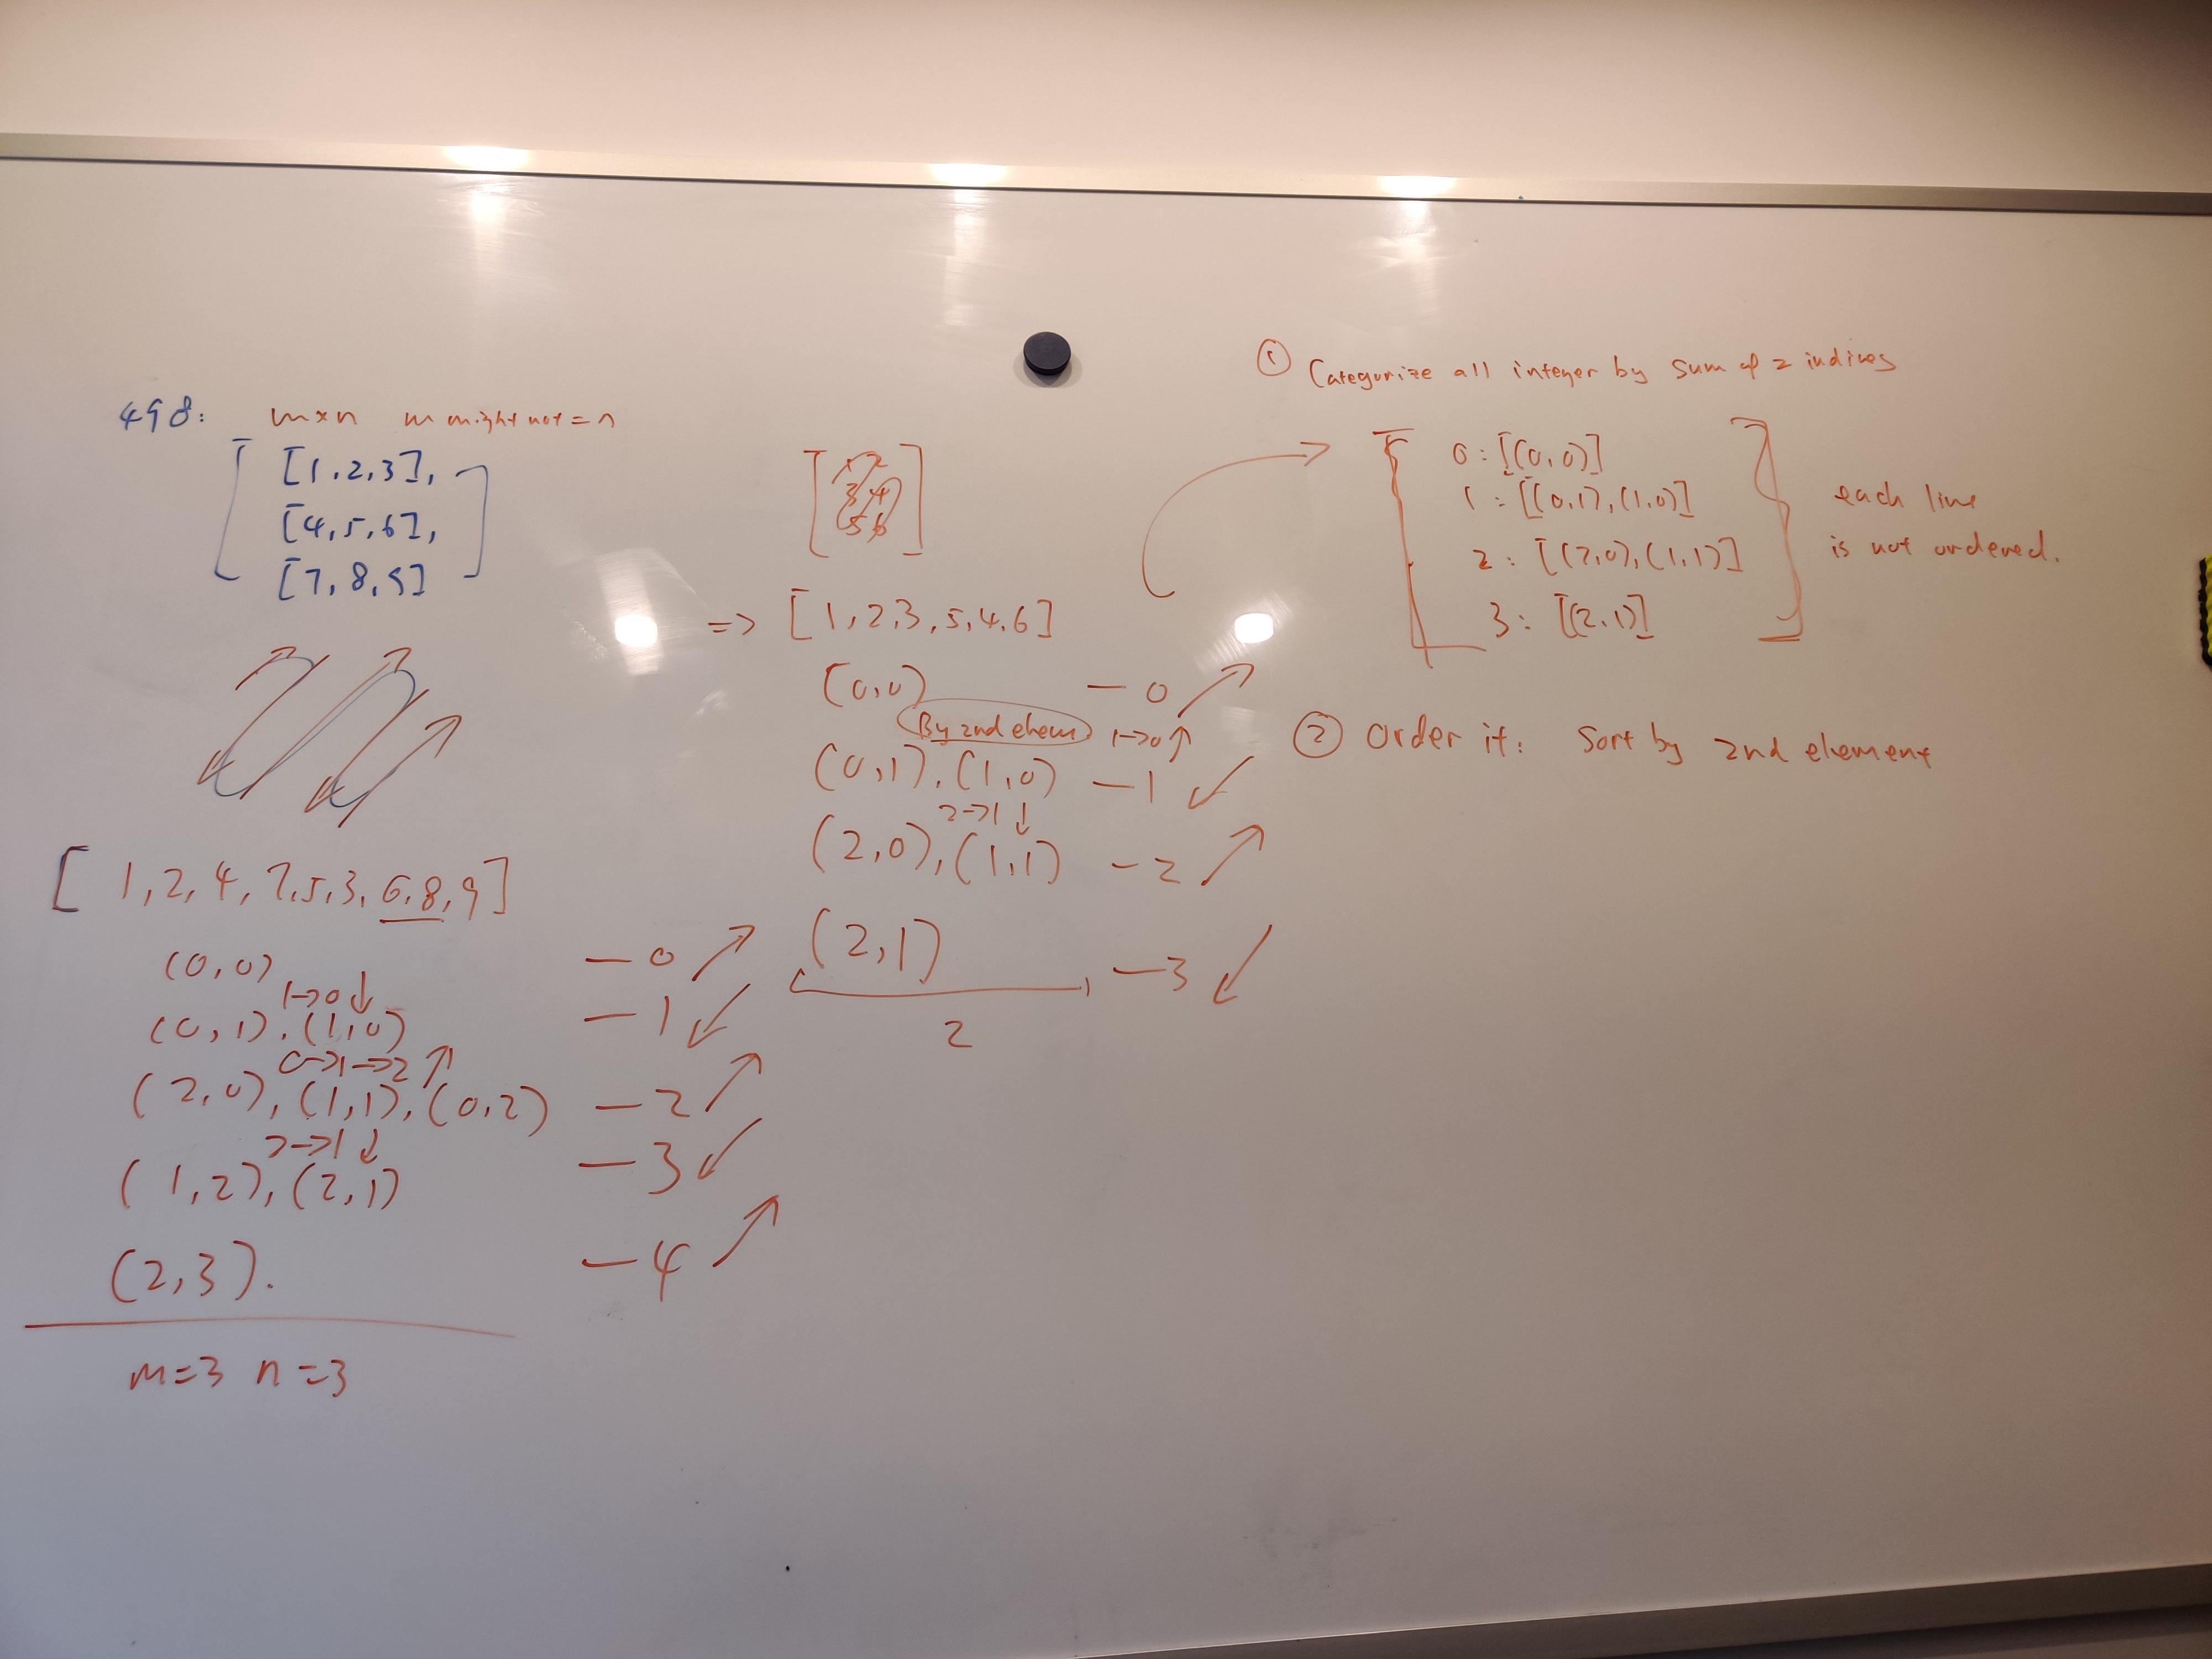 498: m×n m might not = n
[ [1,2,3],
[4,5,6],
[7,8,9] ]
[1,2,4,7,5,3,6,8,9]
(0,0) — 0 ↗
1→0 ↓
(0,1),(1,0) — 1 ↙
0→1→2 ↑
(2,0),(1,1),(0,2) — 2 ↗
2→1 ↓
(1,2),(2,1) — 3 ↙
(2,3). — 4 ↗
m=3 n=3
[ 1 2
3 4
5 6 ]
=> [1,2,3,5,4,6]
(0,0) — 0 ↗
By 2nd elem 1→0 ↑
(0,1),(1,0) — 1 ↙
2→1 ↓
(2,0),(1,1) — 2 ↗
(2,1) — 3 ↙
2
① Categorize all integer by sum of 2 indices
0: [(0,0)]
1: [(0,1),(1,0)]
2: [(2,0),(1,1)]
3: [(2,1)]
each line
is not ordered.
② Order it: Sort by 2nd element